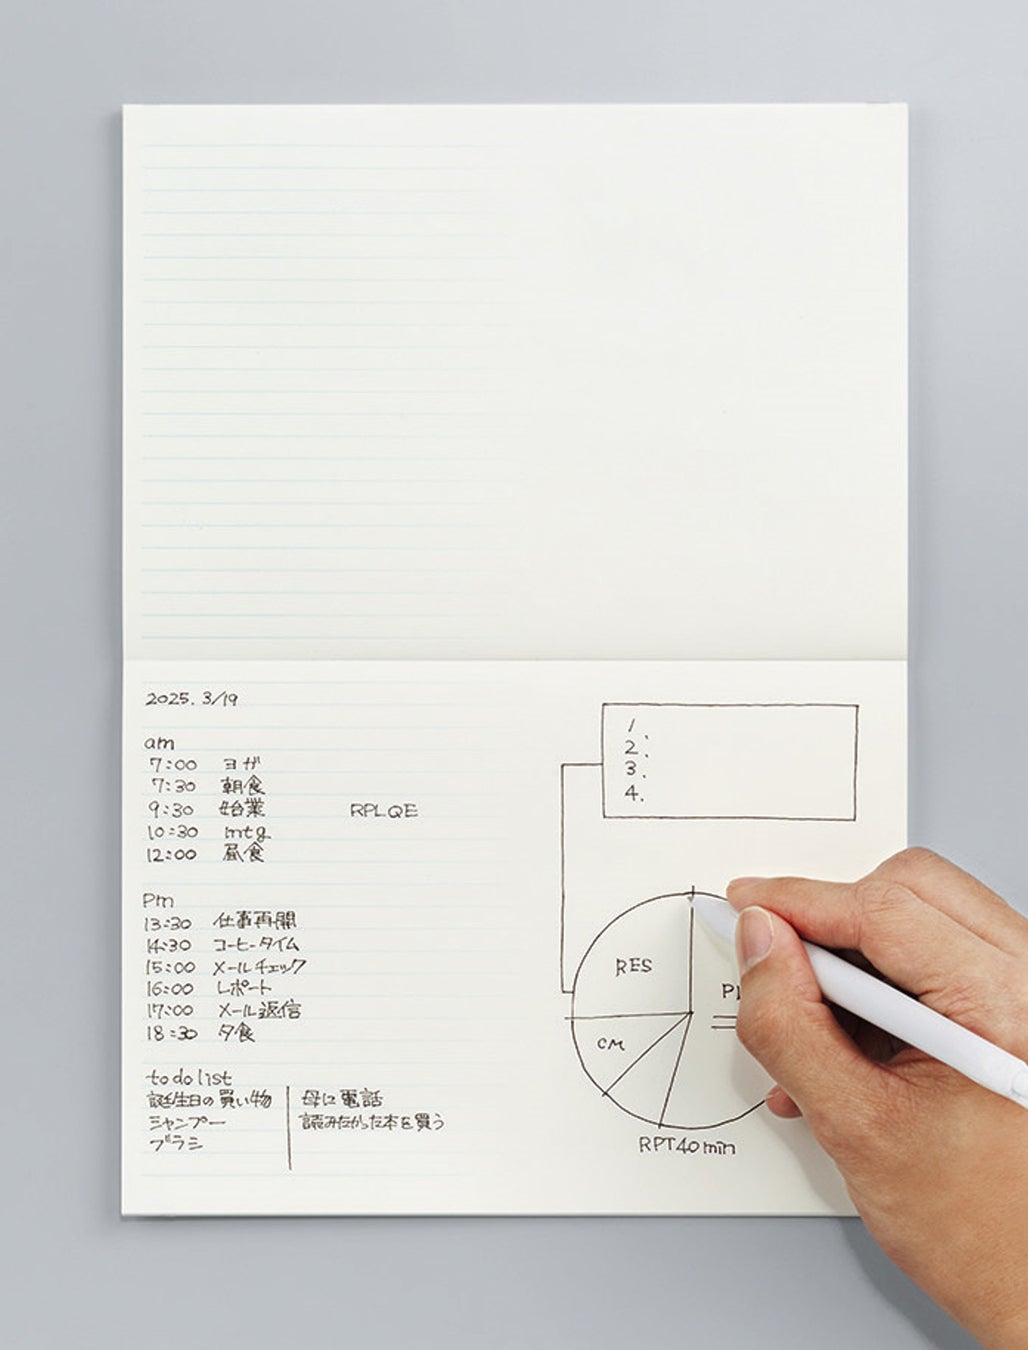 2025. 3/19
am
7:00 ヨガ
7:30 朝食
9:30 始業 RPLQE
10:30 mtg
12:00 昼食
Pm
13:30 仕事再開
14:30 コーヒータイム
15:00 メールチェック
16:00 レポート
17:00 メール返信
18:30 夕食
to do list
誕生日の買い物
シャンプー
ブラシ
母に電話
読みたかった本を買う
1.
2.
3.
4.
RES
CM
RPT40min